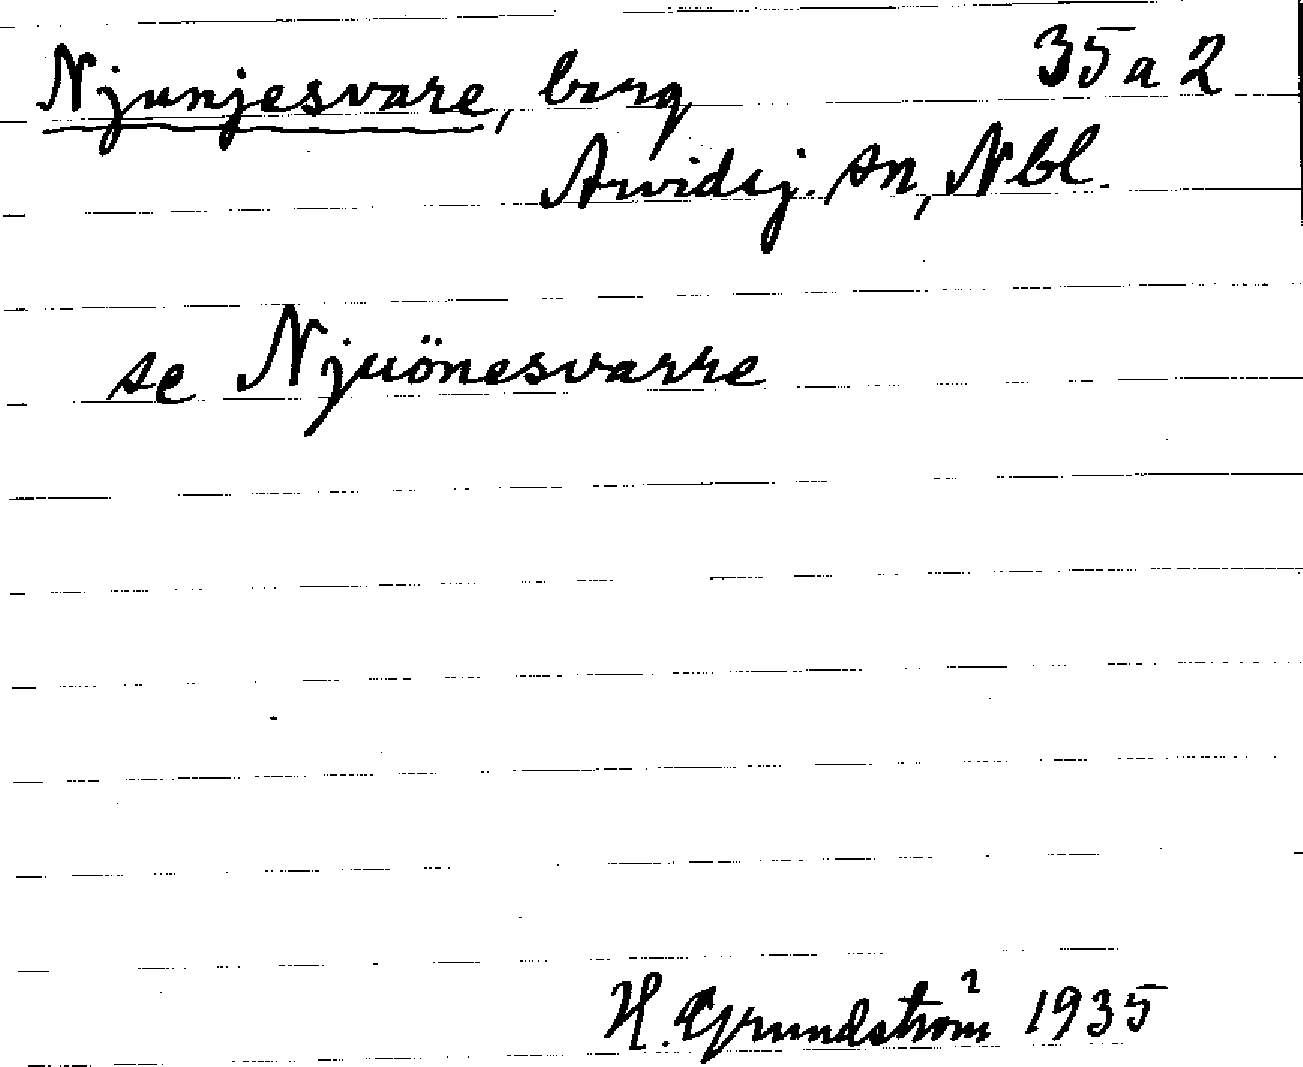 Njunjesvare, berg 35 a 2
Arvidsj. sn, Nbl.
se Njuönesvarre
H. Grundström 1935